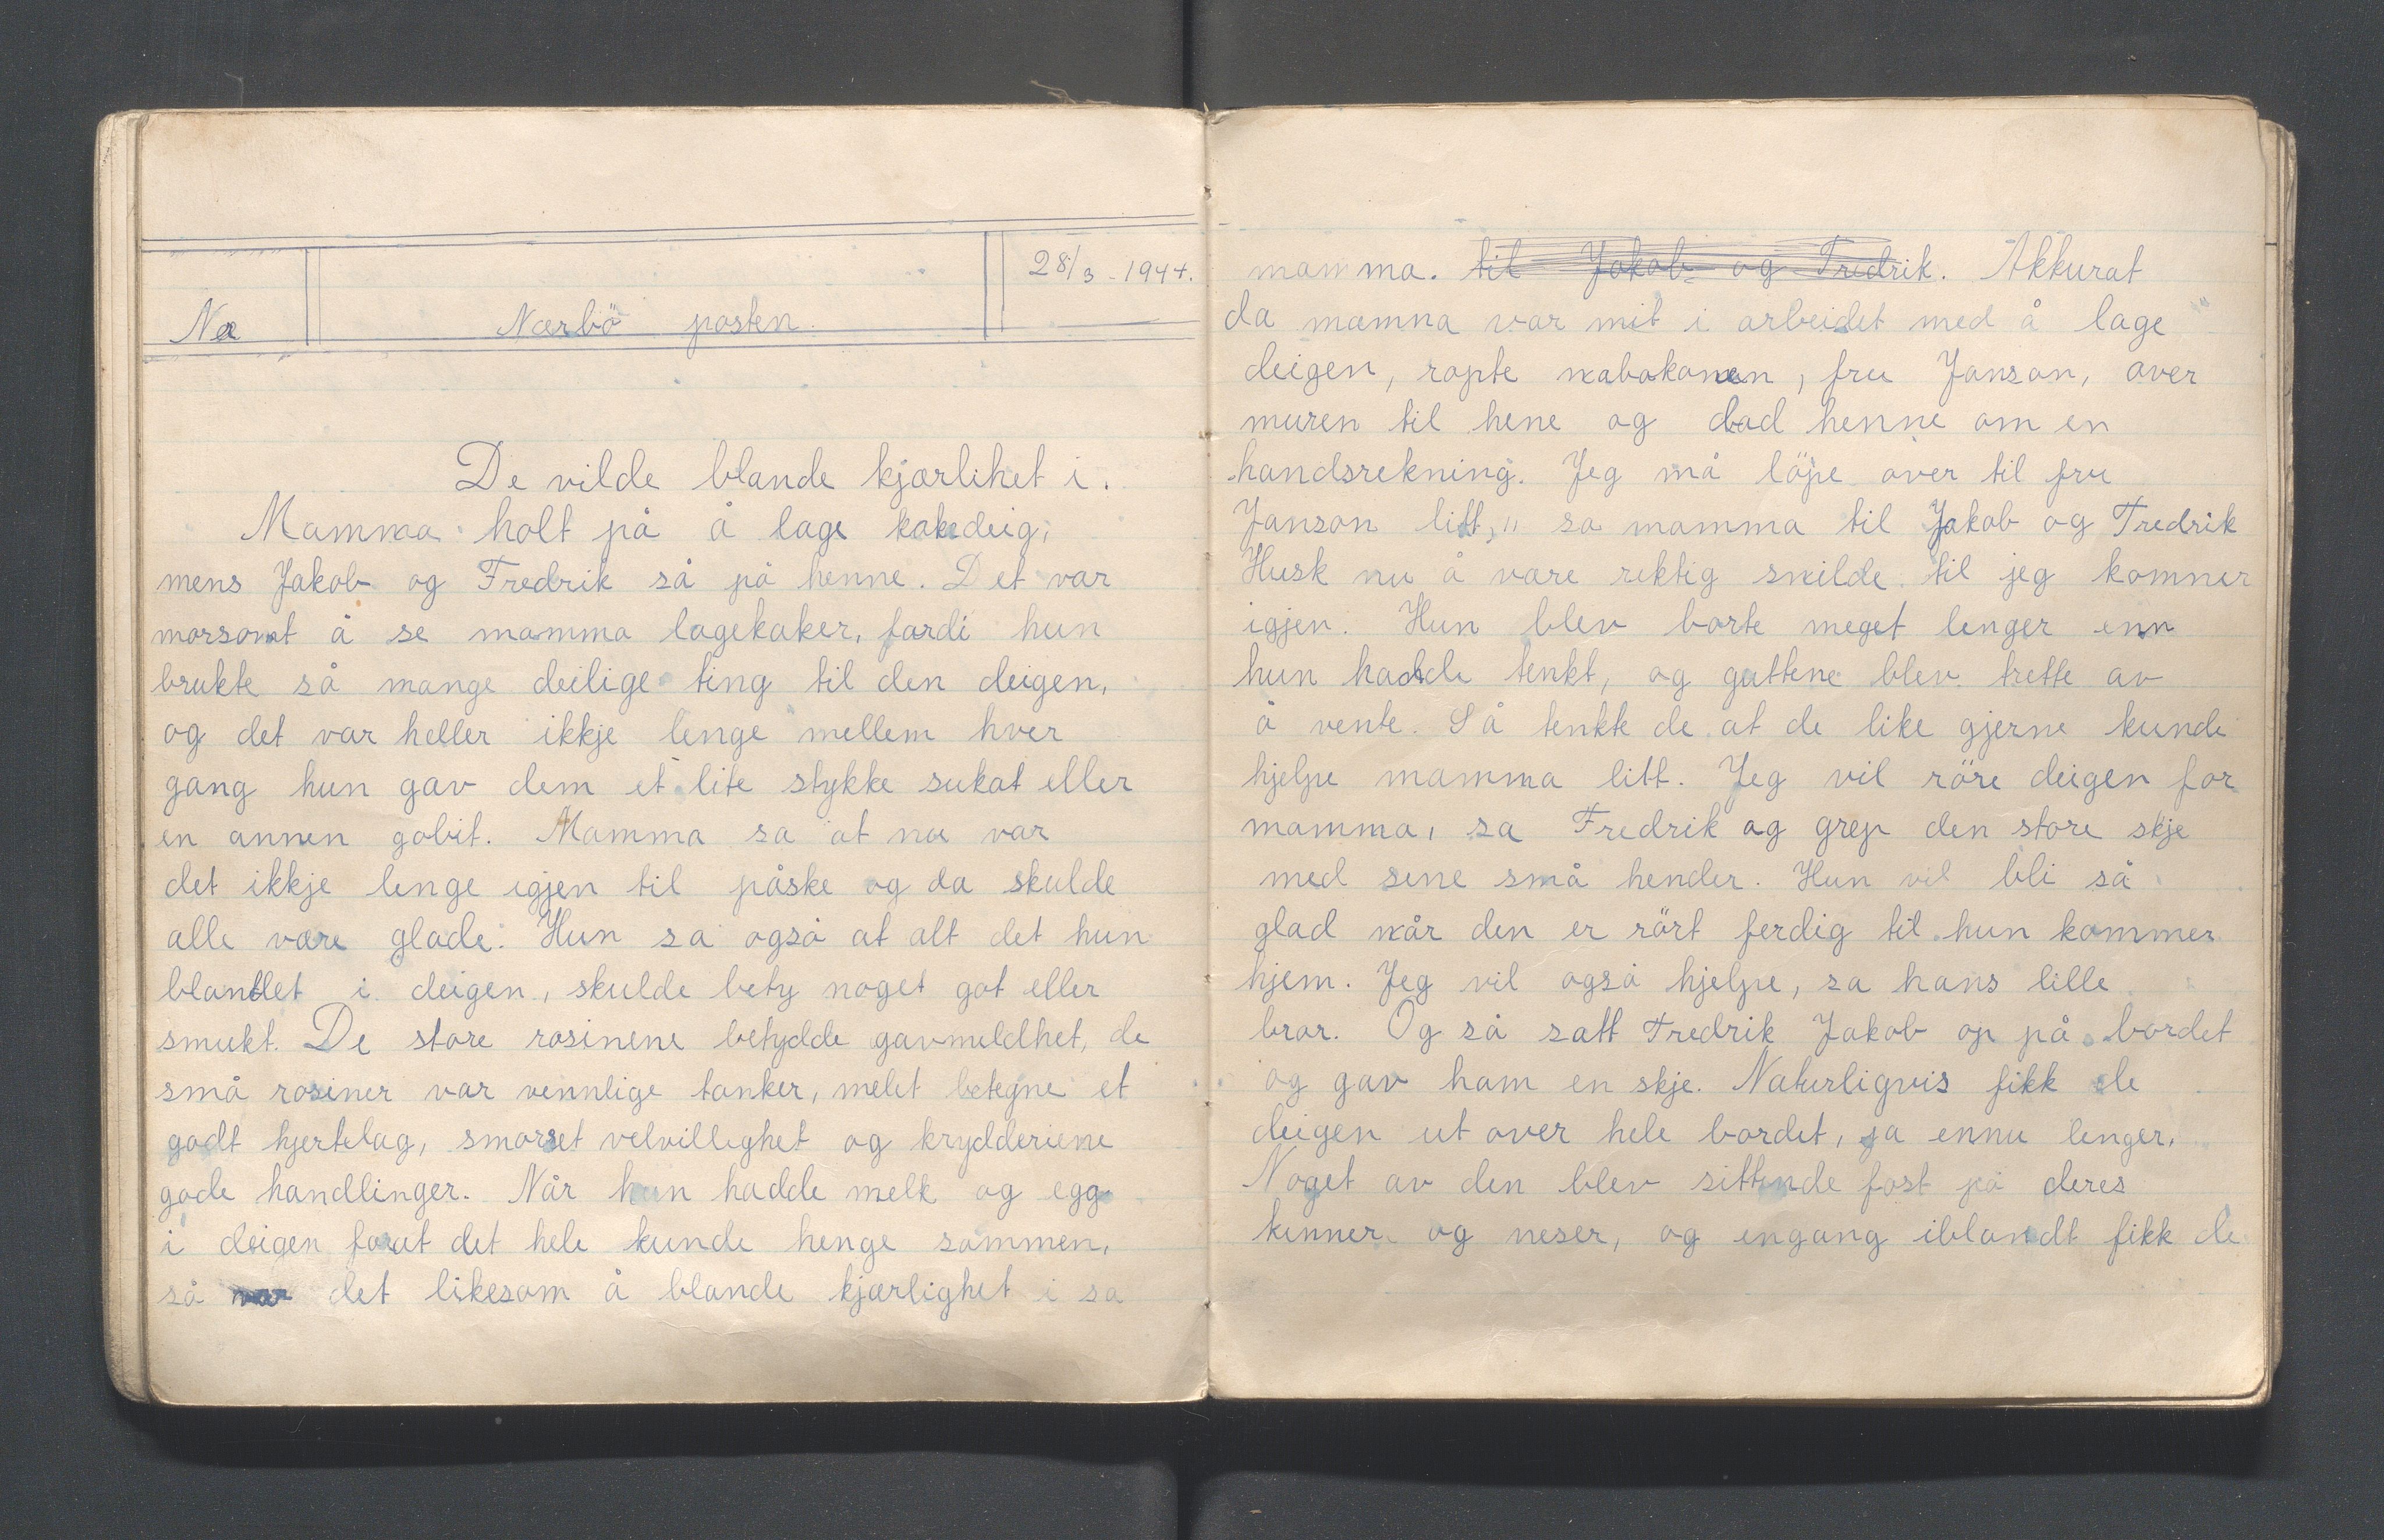 28/3 - 1944.
Næ Nærbö posten.
De vilde blande kjærlihet i.
Mamma holt på å lage kakedeig,
mens Jakob og Fredrik så på henne. Det var
morsomt å se mamma lagekaker, fordi hun
brukte så mange deilige ting til den deigen,
og det var heller ikkje lenge mellem hver
gang hun gav dem et lite stykke sukat eller
en annen gobit. Mamma sa at nu var
det ikkje lenge igjen til påske og da skulde
alle være glade. Hun sa også at alt det hun
blandet i deigen, skulde bety noget got eller
smukt. De store rosinene betydde gavmeldhet, de
små rosiner var vennlige tanker, melet betegne et
godt hjertelag, smørset velvillighet og krydderiene
gode handlinger. Når hun hadde melk og egg
i deigen forat det hele kunde henge sammen,
så var det likesom å blande kjærlighet i sa
mamma. til Jakob og Fredrik. Akkurat
da mamma var mit i arbeidet med å lage
deigen, ropte nabokonen, fru Janson, over
muren til hene og bad henne om en
handsrekning. Jeg må löpe over til fru
Janson litt," sa mamma til Jakob og Fredrik
Husk nu å være rektig snilde til jeg kommer
igjen. Hun blev borte meget lenger enn
hun hadde tenkt, og guttene blev trette av
å vente. Så tenkte de at de like gjerne kunde
hjelpe mamma litt. Jeg vil röre deigen for
mamma, sa Fredrik og grep den store skje
med sene små hender. Hun vil bli så
glad når den er rört ferdig til hun kommer
hjem. Jeg vil også hjelpe, sa hans lille
bror. Og så satt Fredrik Jakob op på bordet
og gav ham en skje. Naturligvis fikk de
deigen ut over hele bordet, ja ennu lenger.
Noget av den blev sittende fast på deres
kinner og neser, og engang iblandt fikk de